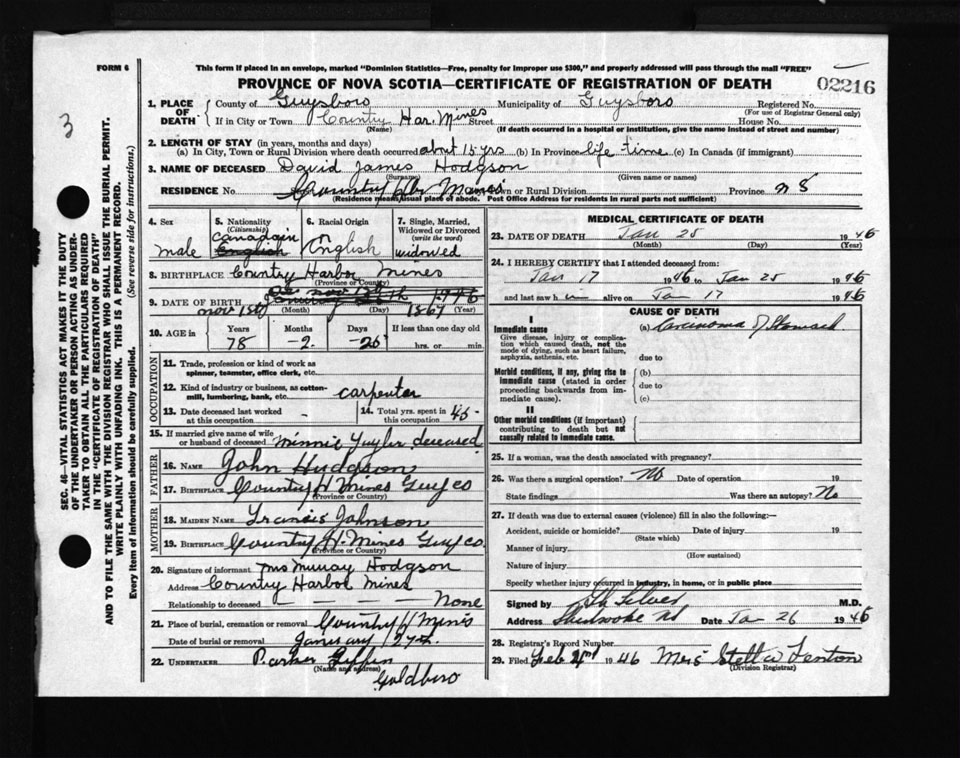 FORM 6
This form if placed in an envelope, marked "Dominion Statistics—Free, penalty for improper use $300," and properly addressed will pass through the mail "FREE"
PROVINCE OF NOVA SCOTIA—CERTIFICATE OF REGISTRATION OF DEATH
02216
3
SEC. 46—VITAL STATISTICS ACT MAKES IT THE DUTY
OF THE UNDERTAKER OR PERSON ACTING AS UNDER-
TAKER TO OBTAIN ALL THE PARTICULARS REQUIRED
IN THE "CERTIFICATE OF REGISTRATION OF DEATH"
AND TO FILE THE SAME WITH THE DIVISION REGISTRAR WHO SHALL ISSUE THE BURIAL PERMIT.
WRITE PLAINLY WITH UNFADING INK. THIS IS A PERMANENT RECORD.
Every item of information should be carefully supplied. (See reverse side for instructions.)
1. PLACE OF DEATH County of Guysboro Municipality of Guysboro Registered No.
(For use of Registrar General only)
If in City or Town Country Har. Mines Street House No.
(Name) (If death occurred in a hospital or institution, give the name instead of street and number)
2. LENGTH OF STAY (in years, months and days)
(a) In City, Town or Rural Division where death occurred about 15 yrs (b) In Province life time (c) In Canada (if immigrant)
3. NAME OF DECEASED David James Hodgson
(Surname) (Given name or names)
RESIDENCE No. Country Hbr Mines Town or Rural Division Province N S
(Residence means usual place of abode. Post Office Address for residents in rural parts not sufficient)
4. Sex male
5. Nationality (Citizenship) Canadain English
6. Racial Origin English
7. Single, Married, Widowed or Divorced (write the word) widowed
8. BIRTHPLACE Country Harbor Mines
(Province or County)
9. DATE OF BIRTH Nov 1st 1867
(Month) (Day) (Year)
10. AGE in Years 78 Months -2- Days -26 If less than one day old hrs. or min.
OCCUPATION
11. Trade, profession or kind of work as spinner, teamster, office clerk, etc.
12. Kind of industry or business, as cotton-mill, lumbering, bank, etc. carpenter
13. Date deceased last worked at this occupation - 14. Total yrs. spent in this occupation 45-
15. If married give name of wife or husband of deceased Minnie Guyler deceased
FATHER
16. NAME John Hudgson
17. BIRTHPLACE Country H Mines Guy co
(Province or Country)
MOTHER
18. MAIDEN NAME Francis Johnson
19. BIRTHPLACE Country H. Mines Guy co.
(Province or Country)
20. Signature of informant Mrs Murray Hodgson
Address Country Harbor Mines
Relationship to deceased None
21. Place of burial, cremation or removal Country H Mines
Date of burial or removal January 27th.
22. UNDERTAKER Parker Giffin
(Name and address)
Goldboro
MEDICAL CERTIFICATE OF DEATH
23. DATE OF DEATH Jan 25 1946
(Month) (Day) (Year)
24. I HEREBY CERTIFY that I attended deceased from:
Jan 17 1946 to Jan 25 1946
and last saw h im alive on Jan 17 1946
CAUSE OF DEATH
I
Immediate cause (a) Carcinoma of Stomach
Give disease, injury or complication which caused death, not the mode of dying, such as heart failure, asphyxia, asthenia, etc.
due to
Morbid conditions, if any, giving rise to immediate cause (stated in order proceeding backwards from immediate cause).
(b)
due to
(c)
II
Other morbid conditions (if important) contributing to death but not causally related to immediate cause.
25. If a woman, was the death associated with pregnancy?
26. Was there a surgical operation? No Date of operation 19
State findings Was there an autopsy? No
27. If death was due to external causes (violence) fill in also the following:—
Accident, suicide or homicide? Date of injury 19
(State which)
Manner of injury
(How sustained)
Nature of injury
Specify whether injury occurred in industry, in home, or in public place
Signed by M.D.
Address Sherbrooke NS Date Jan 26 1946
28. Registrar's Record Number
29. Filed Feb 1946 Mrs Stella Fenton
(Division Registrar)